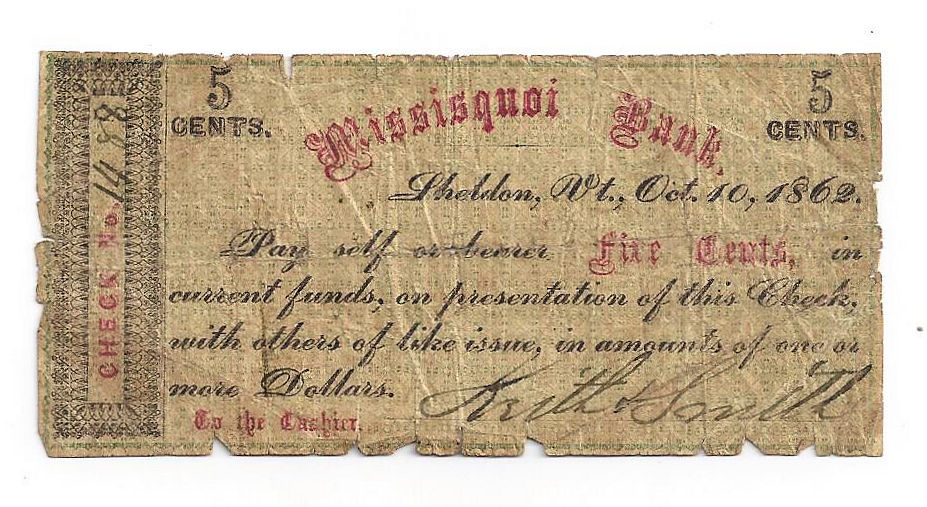 5 CENTS.
Missisquoi Bank,
5 CENTS.
CHECK No. 1488
Sheldon, Vt., Oct. 10, 1862.
Pay self or bearer Five Cents, in
current funds, on presentation of this Check,
with others of like issue, in amounts of one or
more Dollars.
Keith & Smith
To the Cashier.